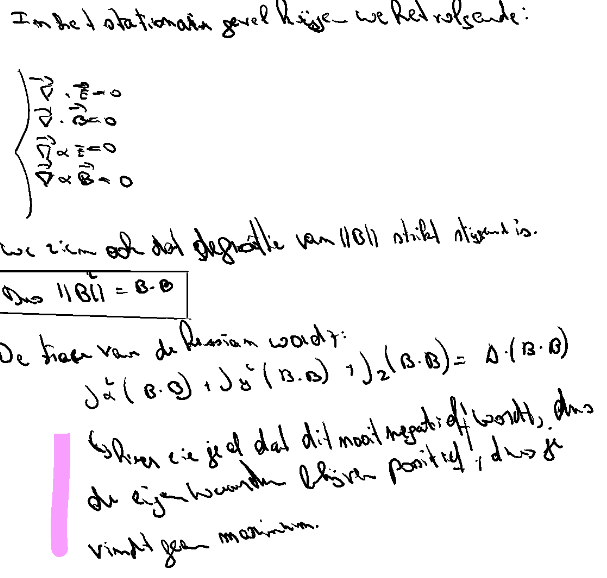 In het stationair geval krijgen we het volgende:
∇⃗ · E⃗ = 0
∇⃗ · B⃗ = 0
∇⃗ × E⃗ = 0
∇⃗ × B⃗ = 0
we zien ook dat de grootte van ||B|| strikt stijgend is.
Dus ||B||² = B·B
De trace van de Hessian wordt:
∂x²(B·B) + ∂y²(B·B) + ∂z(B·B) = Δ·(B·B)
↳ Hier zie je al dat dit nooit negatief wordt, dus
de eigenwaarden blijven positief, dus je
vindt geen maximum.